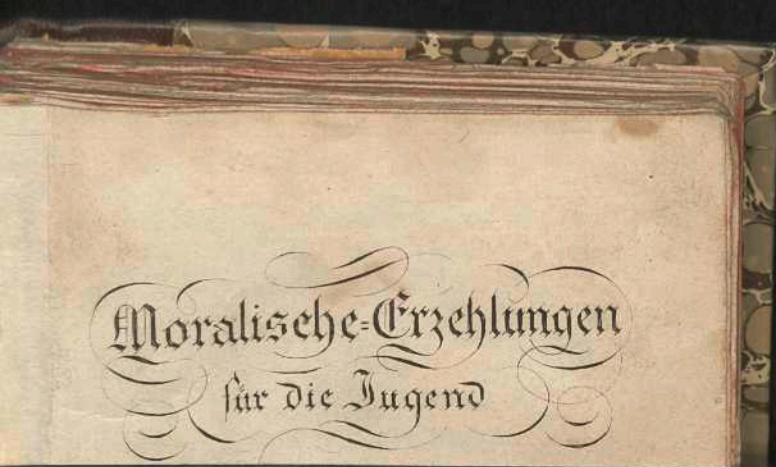 Moralische=Erzehlungen
für die Jugend